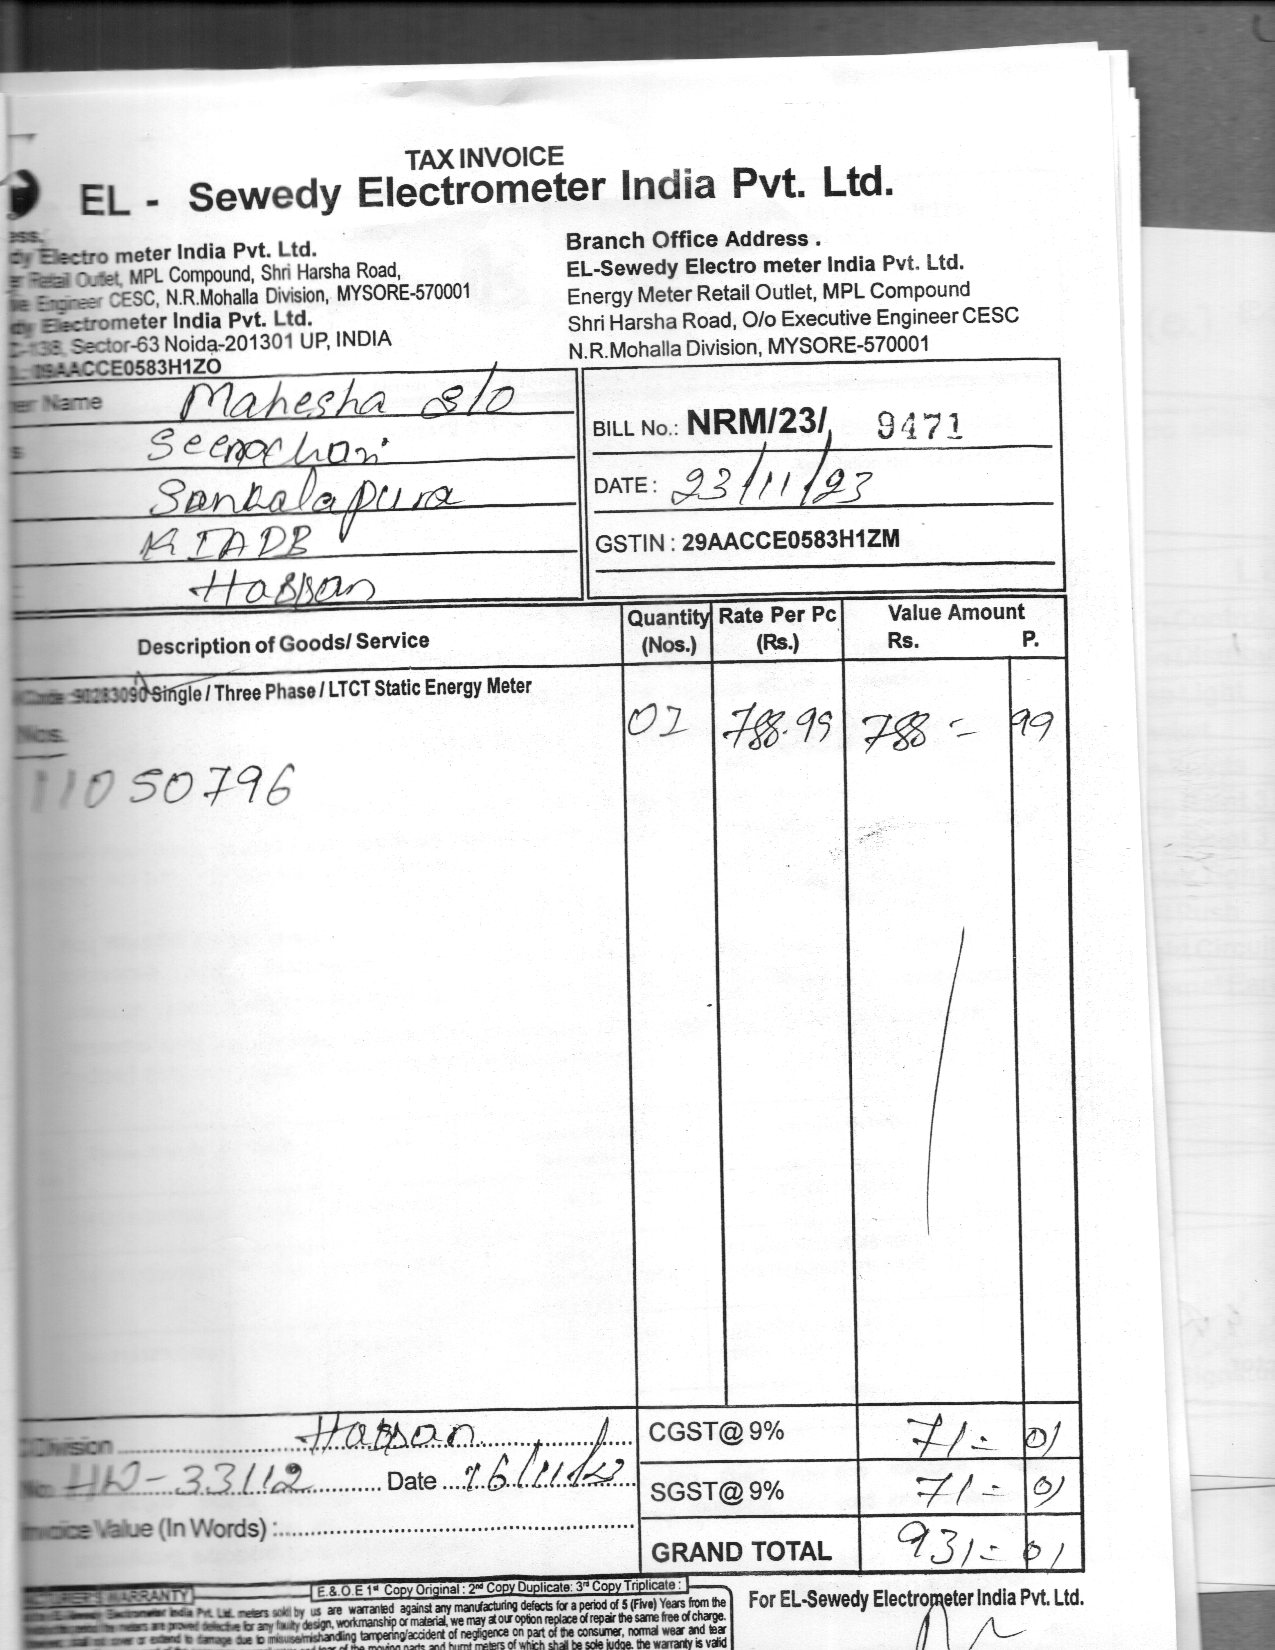 TAX INVOICE
EL - Sewedy Electrometer India Pvt. Ltd.
Electro meter India Pvt. Ltd.
Retail Outlet, MPL Compound, Shri Harsha Road,
Engineer CESC, N.R.Mohalla Division, MYSORE-570001
Electrometer India Pvt. Ltd.
Sector-63 Noida-201301 UP, INDIA
29AACCE0583H1ZO
Branch Office Address .
EL-Sewedy Electro meter India Pvt. Ltd.
Energy Meter Retail Outlet, MPL Compound
Shri Harsha Road, O/o Executive Engineer CESC
N.R.Mohalla Division, MYSORE-570001
Name Mahesha S/O
Seenachari
Sankalapura
KIADB
Hassan
BILL No.: NRM/23/ 9471
DATE : 23/11/23
GSTIN : 29AACCE0583H1ZM
Description of Goods/ Service Quantity (Nos.) Rate Per Pc (Rs.) Value Amount Rs. P.
Code :90283090 Single / Three Phase / LTCT Static Energy Meter
01 788.99 788 = 99
Nos.
11050796
Division Hassan
CGST@ 9% 71 = 01
No. HW-33112 Date 16/11/23
SGST@ 9% 71 = 01
Invoice Value (In Words) :
GRAND TOTAL 931 = 01
WARRANTY E.& O.E 1st Copy Original : 2nd Copy Duplicate: 3rd Copy Triplicate :
For EL-Sewedy Electrometer India Pvt. Ltd.
India Pvt. Ltd. meters sold by us are warranted against any manufacturing defects for a period of 5 (Five) Years from the
meters are proved defective for any faulty design, workmanship or material, we may at our option replace of repair the same free of charge.
shall not cover or extend to damage due to misuse/mishandling tampering/accident of negligence on part of the consumer, normal wear and tear
of the moving parts and burnt meters of which shall be sole judge. the warranty is valid